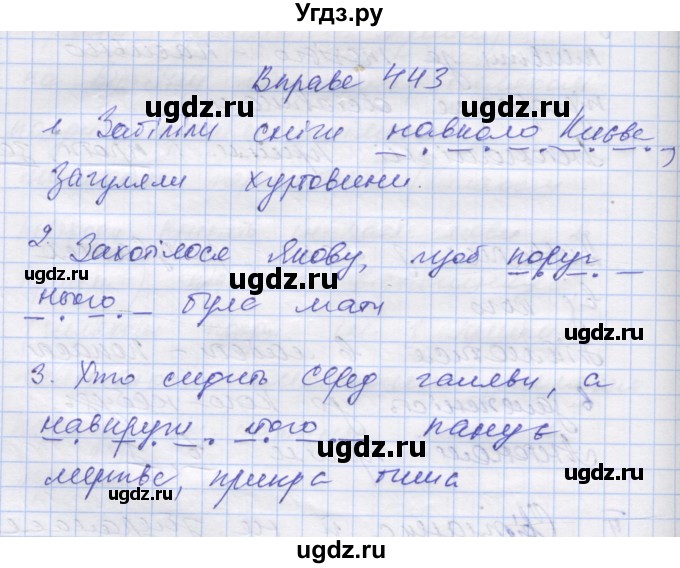 Угдз.ру
Вправа 443
1. Забіліли сніги навколо Києва,
Загуляли хуртовини.
2. Захотілося Якову, щоб поруч
нього була мати
3. Хто сидить серед галяви, а
навкруги його панує
мертва, прикра тиша
ugdz.ru
ugdz.ru
ugdz.ru
ugdz.ru
ugdz.ru
ugdz.ru
ugdz.ru
ugdz.ru
ugdz.ru
ugdz.ru
ugdz.ru
ugdz.ru
ugdz.ru